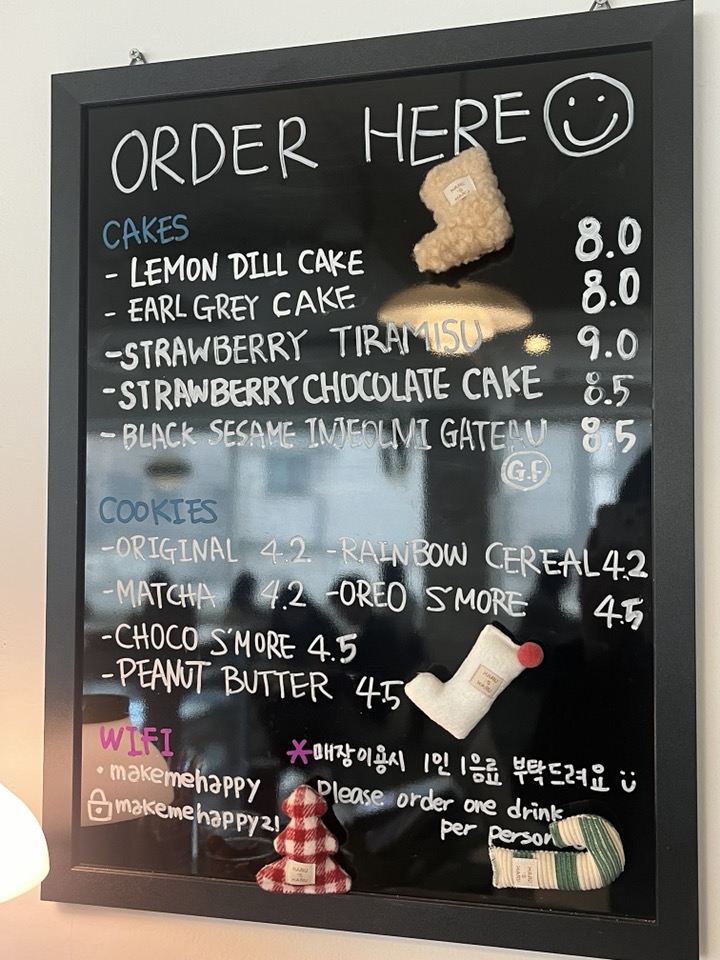 ORDER HERE
CAKES
- LEMON DILL CAKE 8.0
- EARL GREY CAKE 8.0
- STRAWBERRY TIRAMISU 9.0
- STRAWBERRY CHOCOLATE CAKE 8.5
- BLACK SESAME INJEOLMI GATEAU 8.5
G.F
COOKIES
- ORIGINAL 4.2 - RAINBOW CEREAL 4.2
- MATCHA 4.2 - OREO S'MORE 4.5
- CHOCO S'MORE 4.5
- PEANUT BUTTER 4.5
WIFI
• makemehappy
makemehappy21
*매장이용시 1인 1음료 부탁드려요 ü
Please order one drink
per person